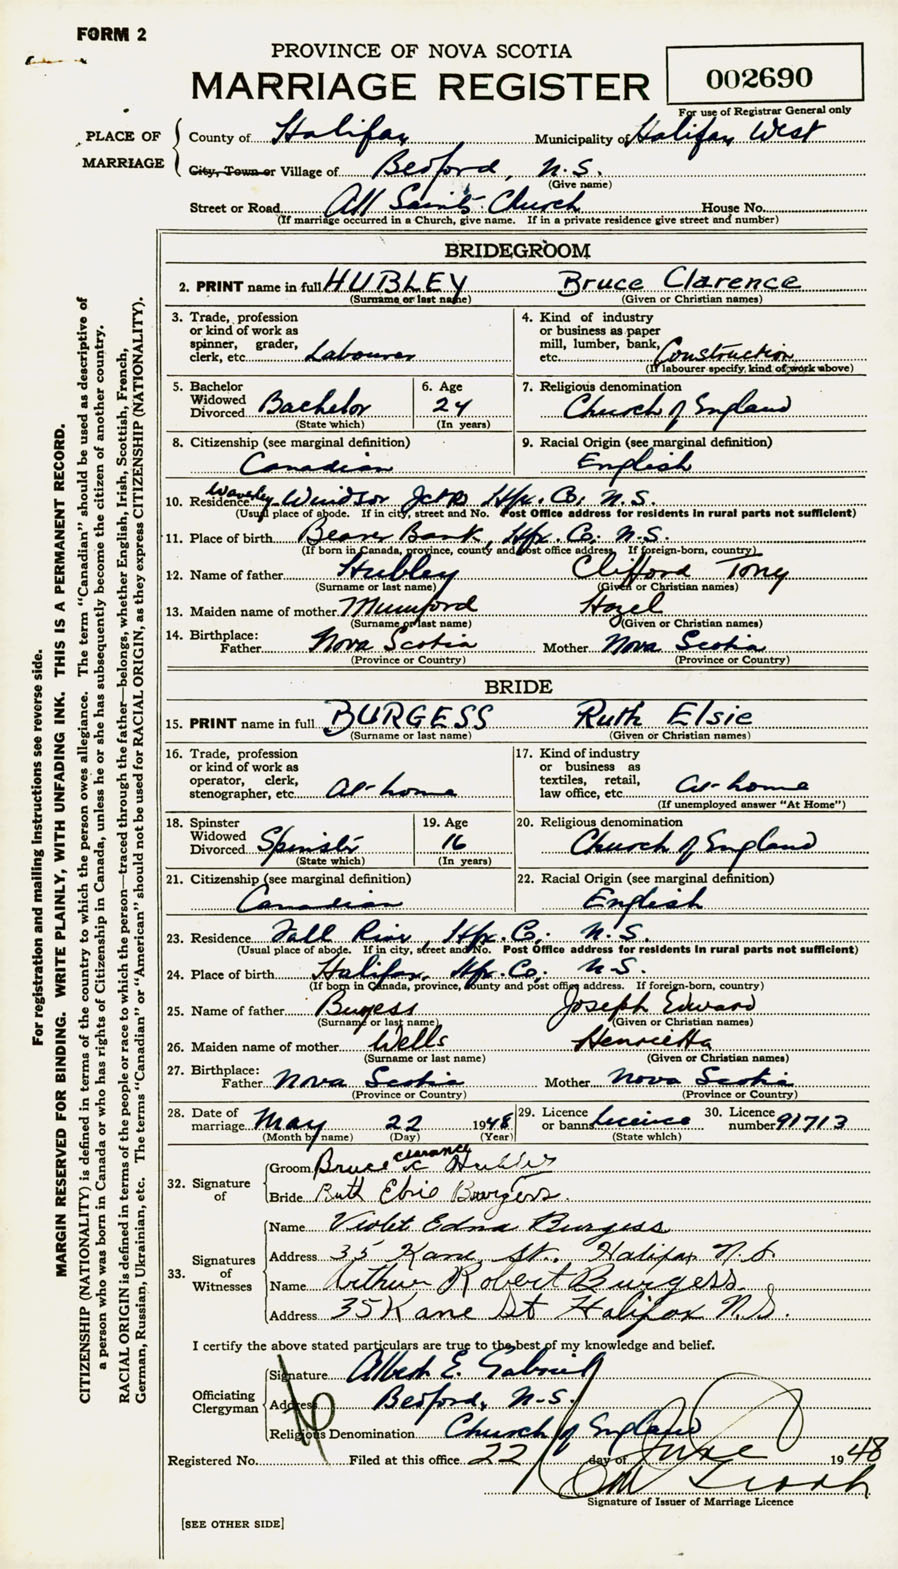 FORM 2
PROVINCE OF NOVA SCOTIA
MARRIAGE REGISTER
002690
For use of Registrar General only
PLACE OF MARRIAGE
County of Halifax Municipality of Halifax West
City, Town or Village of Bedford, N.S.
(Give name)
Street or Road All Saints Church House No.
(If marriage occurred in a Church, give name. If in a private residence give street and number)
BRIDEGROOM
2. PRINT name in full HUBLEY Bruce Clarence
(Surname or last name) (Given or Christian names)
3. Trade, profession or kind of work as spinner, grader, clerk, etc. Labourer
4. Kind of industry or business as paper mill, lumber, bank, etc. Construction
(If labourer specify kind of work above)
5. Bachelor Widowed Divorced Bachelor
(State which)
6. Age 24
(In years)
7. Religious denomination Church of England
8. Citizenship (see marginal definition) Canadian
9. Racial Origin (see marginal definition) English
10. Residence Waverley Windsor Jct Hfx. Co. N.S.
(Usual place of abode. If in city, street and No. Post Office address for residents in rural parts not sufficient)
11. Place of birth Beaver Bank, Hfx. Co. N.S.
(If born in Canada, province, county and post office address. If foreign-born, country)
12. Name of father Hubley Clifford Tony
(Surname or last name) (Given or Christian names)
13. Maiden name of mother Mumford Hazel
(Surname or last name) (Given or Christian names)
14. Birthplace: Father Nova Scotia Mother Nova Scotia
(Province or Country) (Province or Country)
BRIDE
15. PRINT name in full BURGESS Ruth Elsie
(Surname or last name) (Given or Christian names)
16. Trade, profession or kind of work as operator, clerk, stenographer, etc. At-home
17. Kind of industry or business as textiles, retail, law office, etc. At-home
(If unemployed answer "At Home")
18. Spinster Widowed Divorced Spinster
(State which)
19. Age 16
(In years)
20. Religious denomination Church of England
21. Citizenship (see marginal definition) Canadian
22. Racial Origin (see marginal definition) English
23. Residence Fall River, Hfx. Co. N.S.
(Usual place of abode. If in city, street and No. Post Office address for residents in rural parts not sufficient)
24. Place of birth Halifax, Hfx. Co. N.S.
(If born in Canada, province, county and post office address. If foreign-born, country)
25. Name of father Burgess Joseph Edward
(Surname or last name) (Given or Christian names)
26. Maiden name of mother Wells Henrietta
(Surname or last name) (Given or Christian names)
27. Birthplace: Father Nova Scotia Mother Nova Scotia
(Province or Country) (Province or Country)
28. Date of marriage May 22 1948
(Month by name) (Day) (Year)
29. Licence or banns Licence
(State which)
30. Licence number 91713
32. Signature of
Groom Bruce Clarence Hubley
Bride Ruth Elsie Burgess.
33. Signatures of Witnesses
Name Violet Edna Burgess
Address 35 Kane St., Halifax N.S.
Name Arthur Robert Burgess
Address 35 Kane St Halifax N.S.
I certify the above stated particulars are true to the best of my knowledge and belief.
Officiating Clergyman
Signature Albert E. Gabriel
Address Bedford, N.S.
Religious Denomination Church of England
Registered No. Filed at this office 22 day of June 1948
Signature of Issuer of Marriage Licence
[SEE OTHER SIDE]
For registration and mailing instructions see reverse side.
MARGIN RESERVED FOR BINDING. WRITE PLAINLY, WITH UNFADING INK. THIS IS A PERMANENT RECORD.
CITIZENSHIP (NATIONALITY) is defined in terms of the country to which the person owes allegiance. The term "Canadian" should be used as descriptive of
a person who was born in Canada or who has rights of Citizenship in Canada, unless he or she has subsequently become the citizen of another country.
RACIAL ORIGIN is defined in terms of the people or race to which the person—traced through the father—belongs, whether English, Irish, Scottish, French,
German, Russian, Ukrainian, etc. The terms "Canadian" or "American" should not be used for RACIAL ORIGIN, as they express CITIZENSHIP (NATIONALITY).